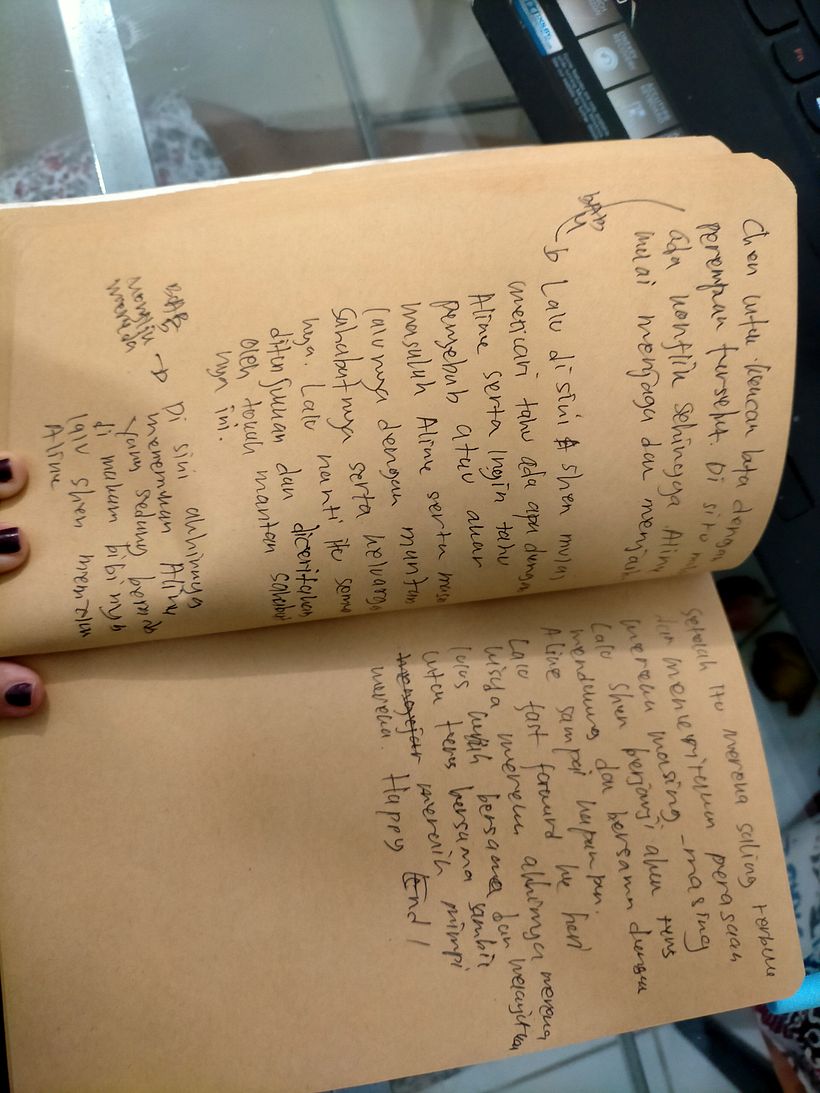 Chen untuk kencan buta dengan
perempuan tersebut. Di situ
ada konflik sehingga Aline
mulai menjaga dan
BAB
4
Lalu disini shen mulai
mencari tahu ada apa dengan
Aline serta ingin tahu
penyebab atau akar
masalah Aline serta masa
lalunya dengan mantan
Sahabatnya serta keluarga
nya. Lalu nanti itu semua
ditunjukan dan diceritakan
oleh tokoh mantan sahabat
nya ini.
BAB
menuju
mereda
Di sini akhirnya
menemukan Aline
yang sedang berada
di makam bibinya
lalu shen
Aline
setelah itu mereka saling
dan menceritakan perasaan
mereka masing-masing
Lalu Shen berjanji akan terus
mendukung dan bersama dengan
Aline sampai kapanpun.
Lalu fast forward ke hari
wisuda mereka akhirnya mereka
lulus bersama dan
untuk terus bersama sambil
mengejar meraih mimpi
mereka. Happy End!
Fn